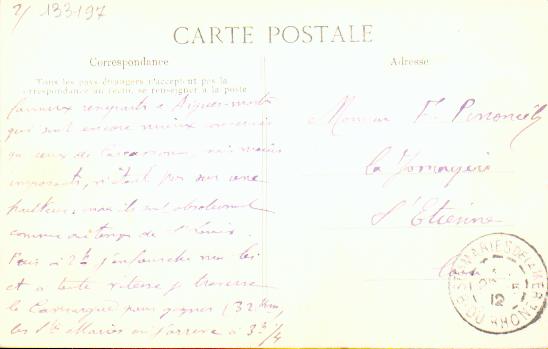 2/ 133-197
CARTE POSTALE
Correspondance
Adresse
Tous les pays étrangers n'acceptent pas la
correspondance au recto, se renseigner à la poste
fameux remparts d'Aigues-mortes
qui sont encore mieux conservés
que ceux de Carcassonne, mais moins
imposants, n'étant pas sur une
hauteur, mais ils sont absolument
comme au temps de St Louis.
Puis à 2h j'enfourche mon
et à toute vitesse je traverse
la Camargue pour gagner (32 km)
les Stes Maries où j'arrive à 3h 3/4
Monsieur F.
la
St Etienne
Loire
STES MARIES DE LA MER
12
BOUCHES DU RHONE